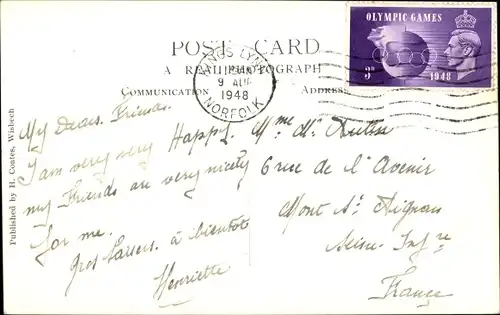 POST CARD
A REAL PHOTOGRAPH
COMMUNICATION
ADDRESS
OLYMPIC GAMES
3D
1948
KINGS LYNN
PM
9 AUG
1948
NORFOLK
Published by H. Coates, Wisbech
My Dears Friends.
I am very very Happy.
my Friends are very nicely
for me.
Gros baisers. à bientôt
Henriette
Mme
6 rue de l'Avenir
Mont St Aignan
Seine-Infre
France